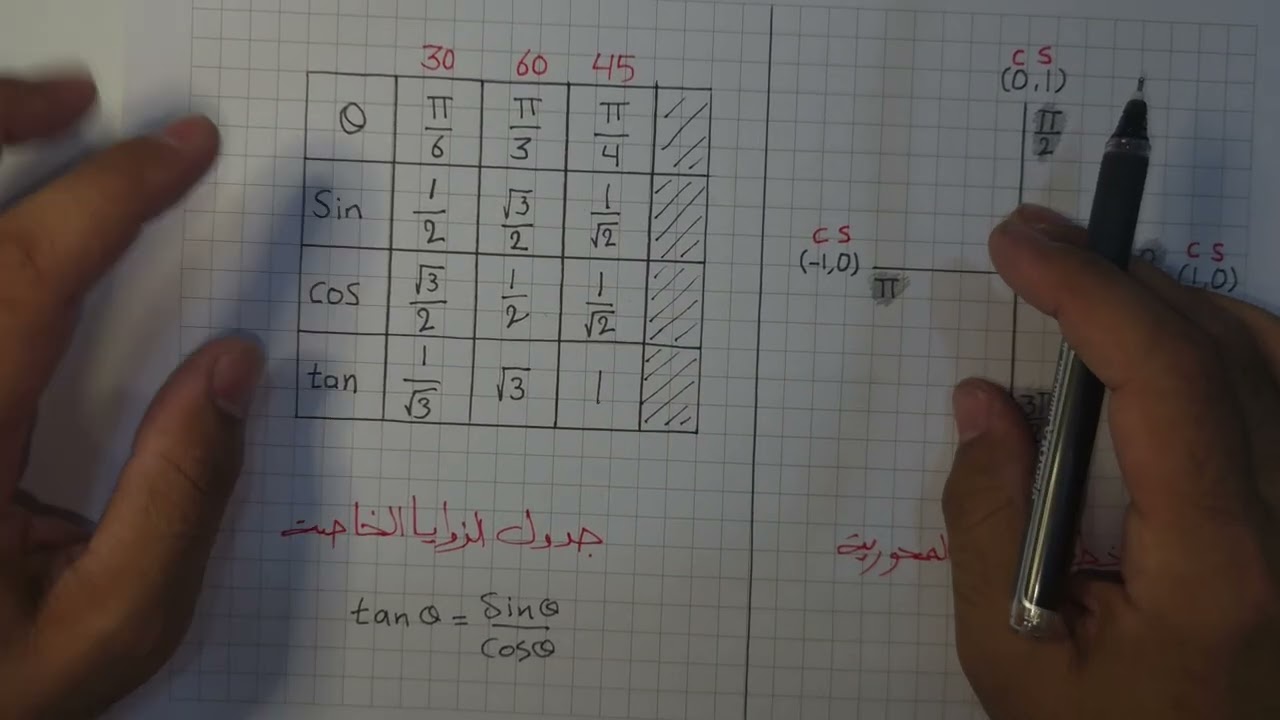 30 60 45
θ π/6 π/3 π/4
Sin 1/2 √3/2 1/√2
cos √3/2 1/2 1/√2
tan 1/√3 √3 1
جدول الزوايا الخاصة
tanθ = Sinθ/cosθ
C S
(0,1)
π/2
C S
(-1,0)
π
C S
(1,0)